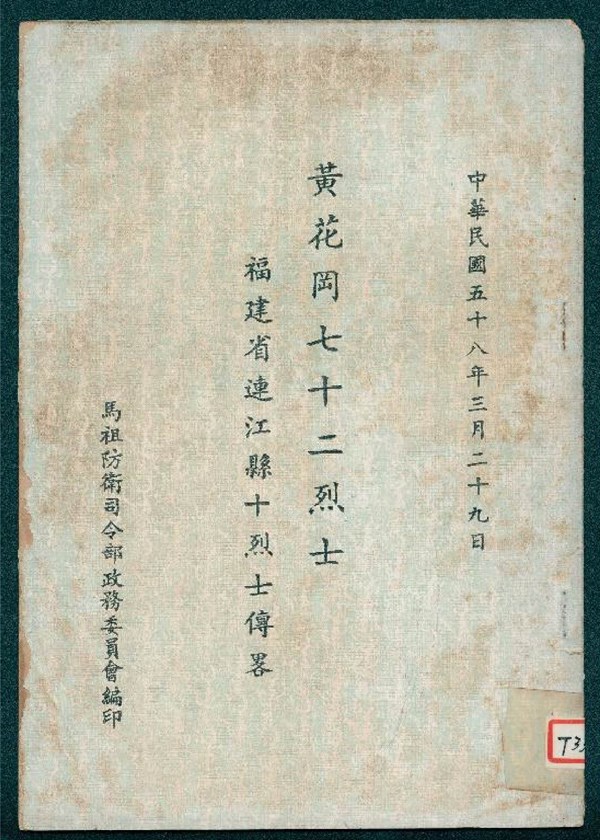 中華民國五十八年三月二十九日
黃花岡七十二烈士
福建省連江縣十烈士傳畧
馬祖防衛司令部政務委員會編印
T3